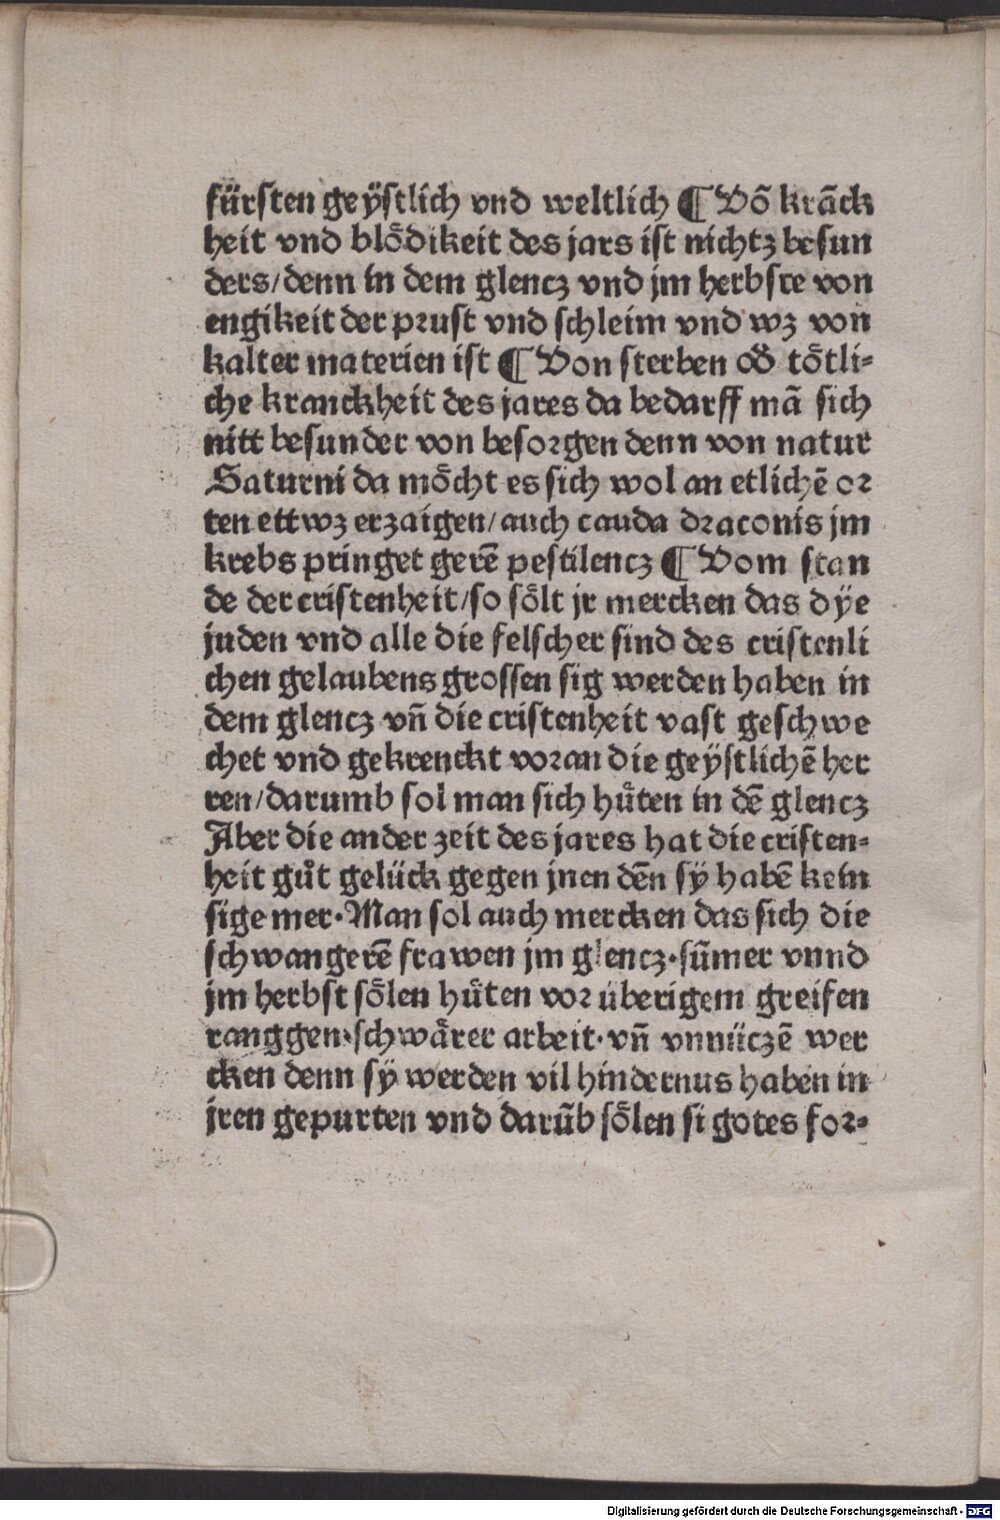 fürsten geÿstlich vnd weltlich ¶ Võ krãck
heit vnd blo᷑dikeit des jars ist nichtz besun
ders/denn in dem glencz vnd jm herbste von
engikeit der prust vnd schleim vnd wz von
kalter materien ist ¶ Von sterben oď to᷑tli-
che kranckheit des jares da bedarff mã sich
nitt besunder von besorgen denn von natur
Saturni da mo᷑cht es sich wol an etlichẽ or
ten ettwz erzaigen/auch cauda draconis jm
krebs pringet gerẽ pestilencz ¶ Vom stan
de der cristenheit/so so᷑lt jr mercken das dÿe
juden vnd alle die felscher sind des cristenli
chen gelaubens grossen sig werden haben in
dem glencz vñ die cristenheit vast geschwe
chet vnd gekrenckt voran die geÿstlichẽ her
ren/darumb sol man sich hůten in dẽ glencz
Aber die ander zeit des jares hat die cristen-
heit gůt gelück gegen jnen dẽn sÿ habẽ kein
sige mer·Man sol auch mercken das sich die
schwangerẽ frawen jm glencz·sũmer vnnd
jm herbst so᷑len hůten vor überigem greifen
ranggen·schwa᷑rer arbeit·vñ vnnüczẽ wer
cken denn sÿ werden vil hindernus haben in
jren gepurten vnd darũb so᷑len si gotes for-
Digitalisierung gefördert durch die Deutsche Forschungsgemeinschaft - DFG